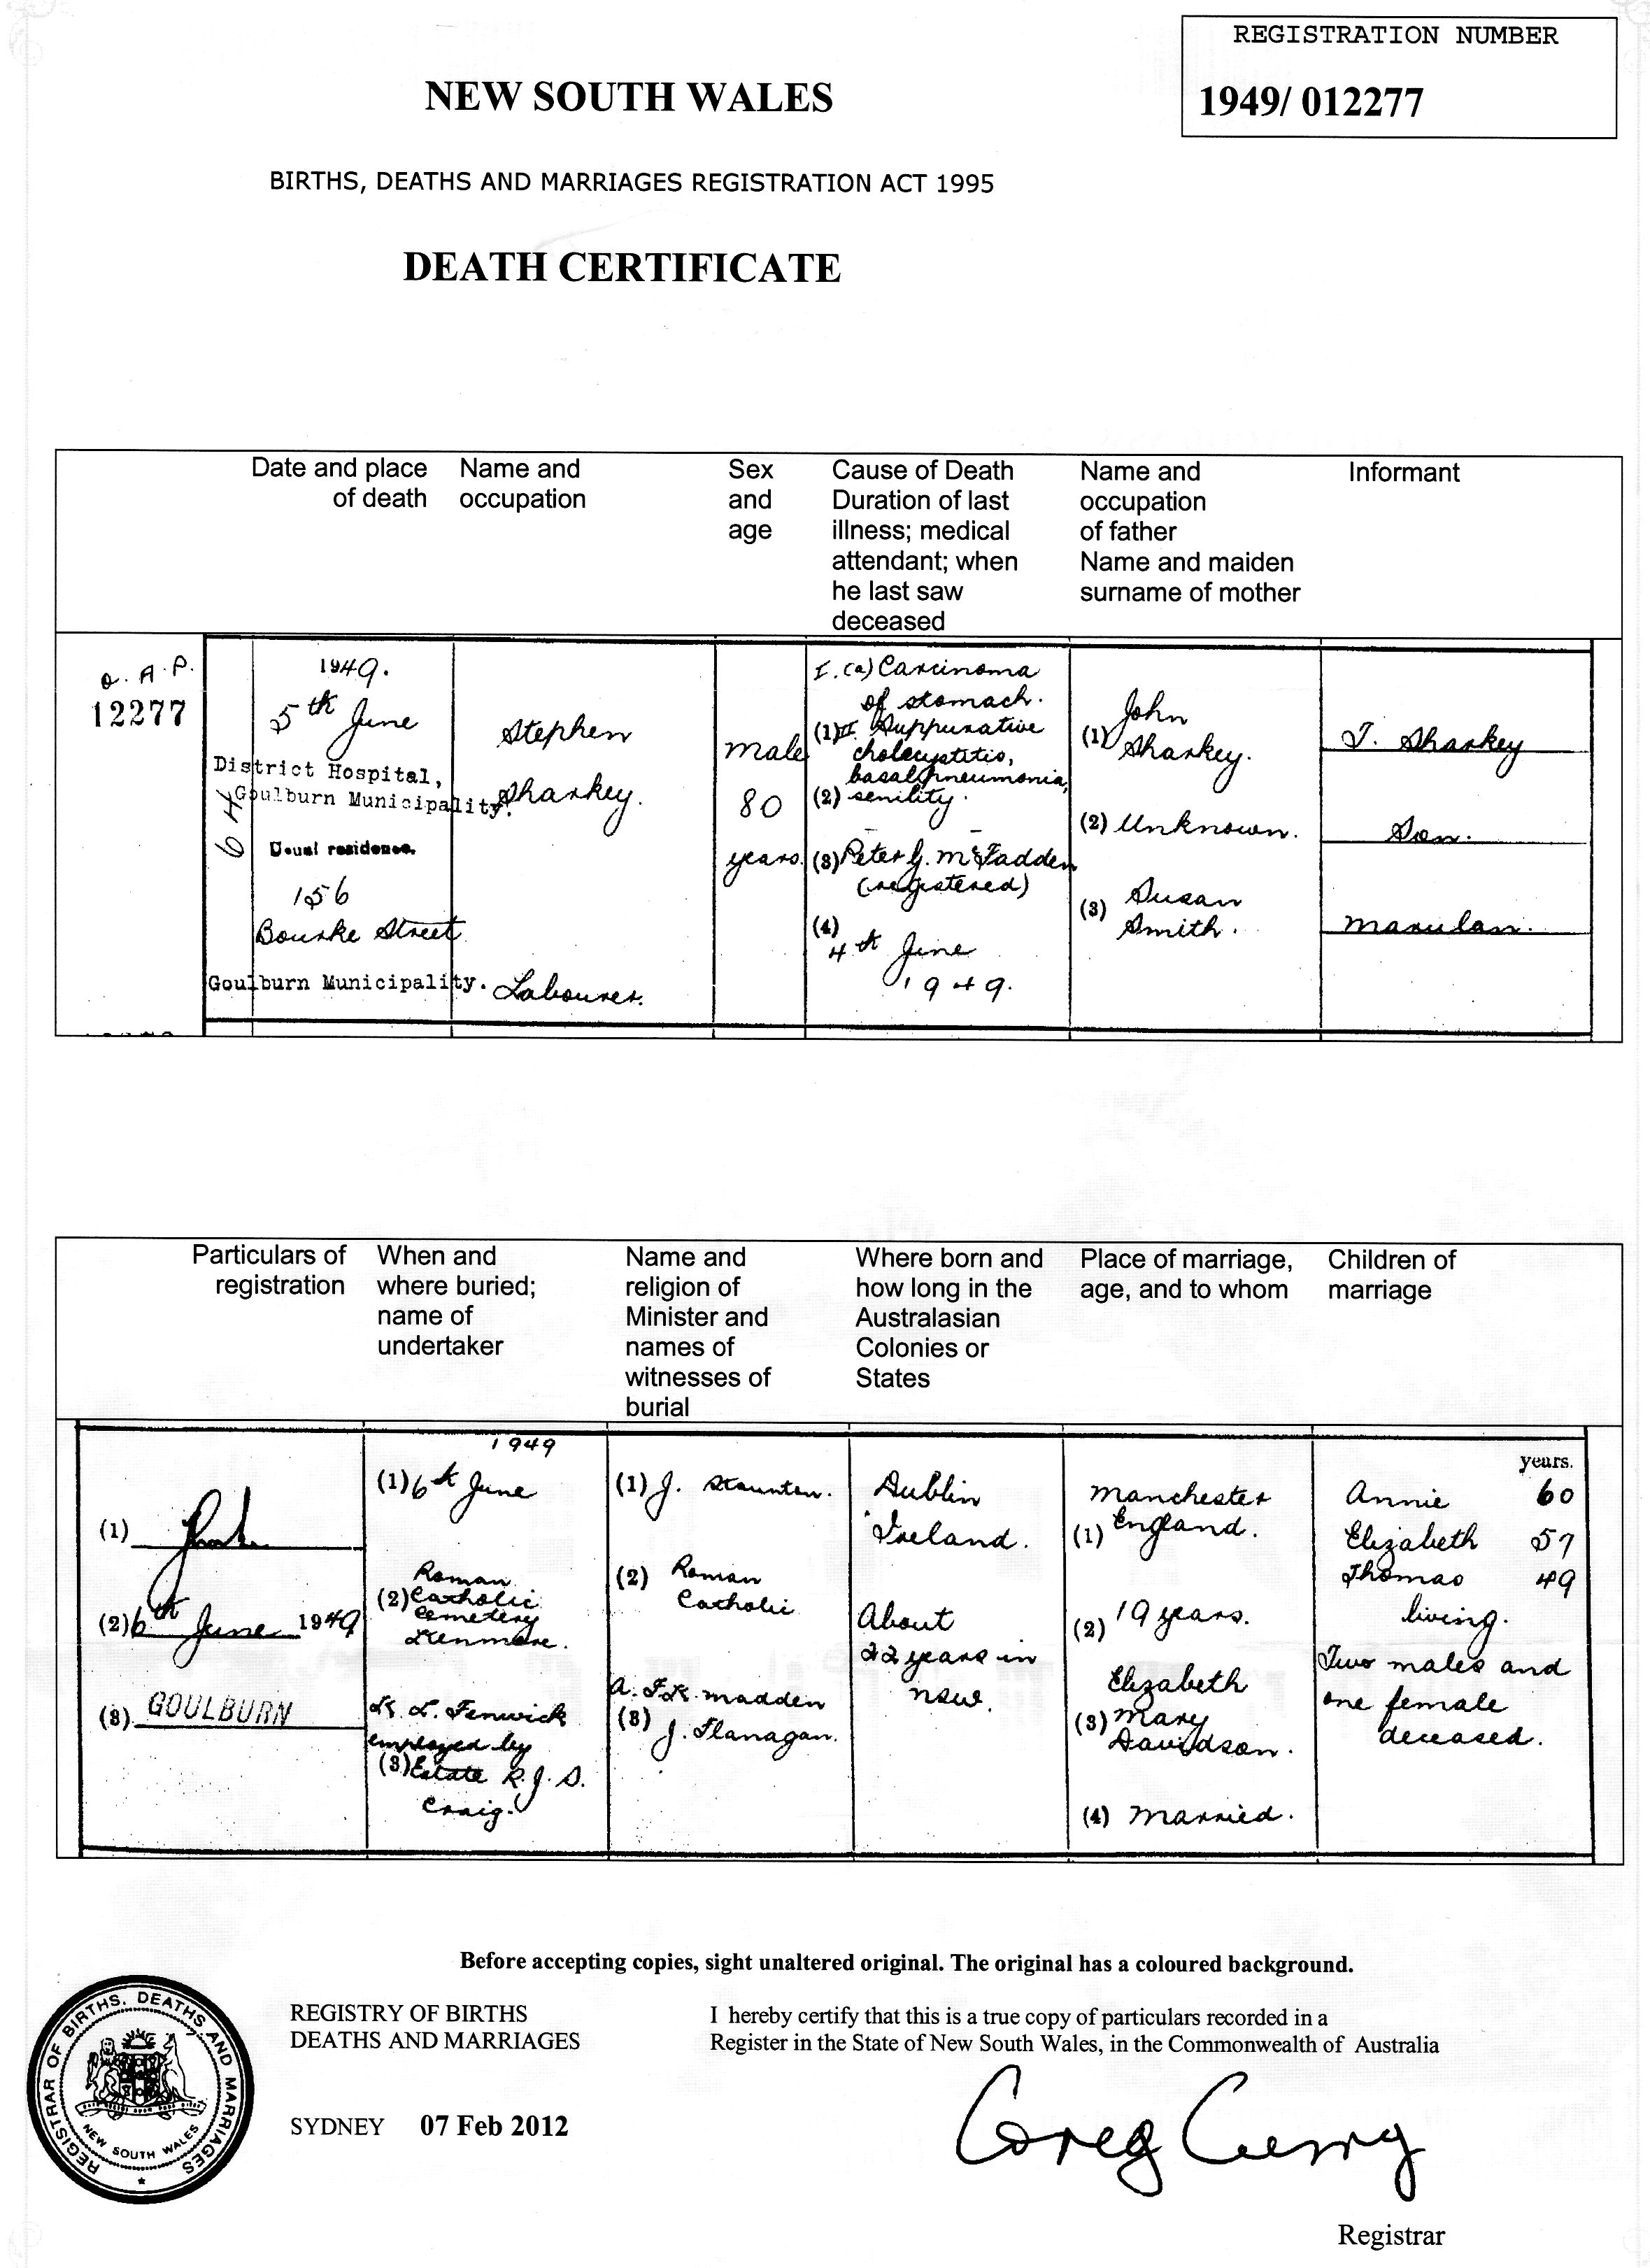 REGISTRATION NUMBER
1949/ 012277
NEW SOUTH WALES
BIRTHS, DEATHS AND MARRIAGES REGISTRATION ACT 1995
DEATH CERTIFICATE
Date and place
of death
Name and
occupation
Sex
and
age
Cause of Death
Duration of last
illness; medical
attendant; when
he last saw
deceased
Name and
occupation
of father
Name and maiden
surname of mother
Informant
O. A. P.
12277
64
1949.
5th June
District Hospital,
Goulburn Municipality.
Usual residence.
156
Bourke Street
Goulburn Municipality.
Stephen
Sharkey.
Labourer.
Male
80
years.
I. (a) Carcinoma
of stomach.
(1) II. Suppurative
cholecystitis,
basal pneumonia,
(2) senility.
(3) Peter G. McFadden
(registered)
(4)
4th June
1949.
John
(1) Sharkey.
(2) Unknown.
Susan
(3) Smith.
T. Sharkey
Son.
Marulan.
Particulars of
registration
When and
where buried;
name of
undertaker
Name and
religion of
Minister and
names of
witnesses of
burial
Where born and
how long in the
Australasian
Colonies or
States
Place of marriage,
age, and to whom
Children of
marriage
(1)
(2) 6th June 1949
(3) GOULBURN
1949
(1) 6th June
Roman
(2) Catholic
Cemetery
Kenmore.
K. L. Fenwick
employed by
(3) Estate R. J. S.
Craig.
(1) J. Staunton.
(2) Roman
Catholic
A. Madden
(3)
J. Flanagan.
Dublin
Ireland.
About
22 years in
NSW.
Manchester
(1) England.
(2) 19 years.
Elizabeth
(3) Mary
Davidson.
(4) Married.
years.
Annie 60
Elizabeth 57
Thomas 49
living.
Two males and
one female
deceased.
Before accepting copies, sight unaltered original. The original has a coloured background.
REGISTRY OF BIRTHS
DEATHS AND MARRIAGES
I hereby certify that this is a true copy of particulars recorded in a
Register in the State of New South Wales, in the Commonwealth of Australia
REGISTRAR OF BIRTHS, DEATHS AND MARRIAGES
NEW SOUTH WALES
SYDNEY 07 Feb 2012
Greg Curry
Registrar